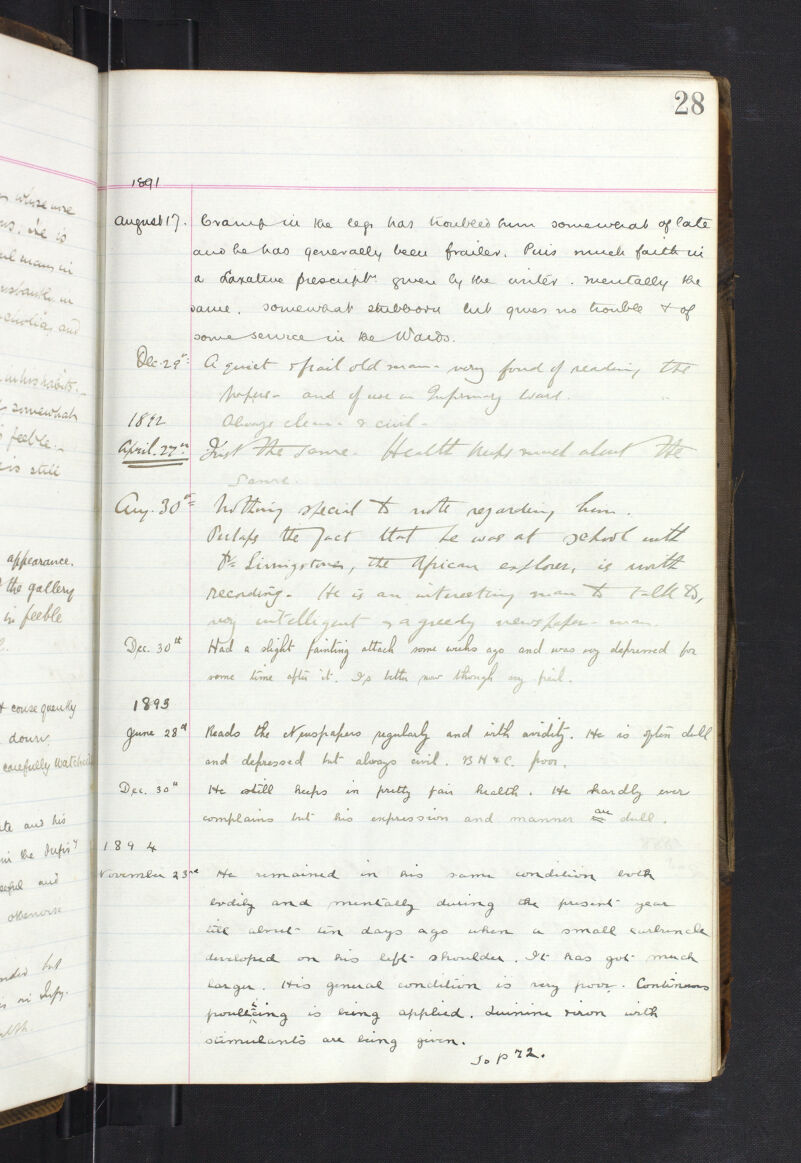 28
1891
August 17. Cramp in the legs has troubled him somewhat of late
and he has generally been frailer. Puts much faith in
a Laxative prescript given by the writer. Mentally the
same. Somewhat stubborn but gives no trouble & of
some service in the Wards.
Dec. 29th A quiet & frail old man - very fond of reading the
papers - and of use in Infirmary Ward.
Always clean & civil -
1892
April. 27th Just the same. Health keeps much about the
same.
Aug. 30th Nothing special to note regarding him.
Perhaps the fact that he was at school with
Dr Livingstone, the African explorer, is worth
recording. He is an interesting man to talk to,
very intelligent & a greedy newspaper-man.
Dec. 30th Had a slight fainting attack some weeks ago and was very depressed for
some time after it. Is better now though very frail.
1893
June 28th Reads the Newspapers regularly and with avidity. He is often dull
and depressed but always civil. B H & C. poor.
Dec. 30th He still keeps in pretty fair health. He hardly ever
complains but his expression and manner are dull.
1894
November 23rd He remained in his same condition both
bodily and mentally during the present year
till about ten days ago when a small carbuncle
developed on his left shoulder. It has got much
larger. His general condition is very poor. Continuous
poulticing is being applied. Quinine & iron with
stimulants are being given.
To p 72.
whose
he is
man in
and
habits.
somewhat
feeble.
is still
appearance.
the gallery
in feeble
& consequently
down
carefully watched
and his
in the
and
otherwise
but
in Infy.